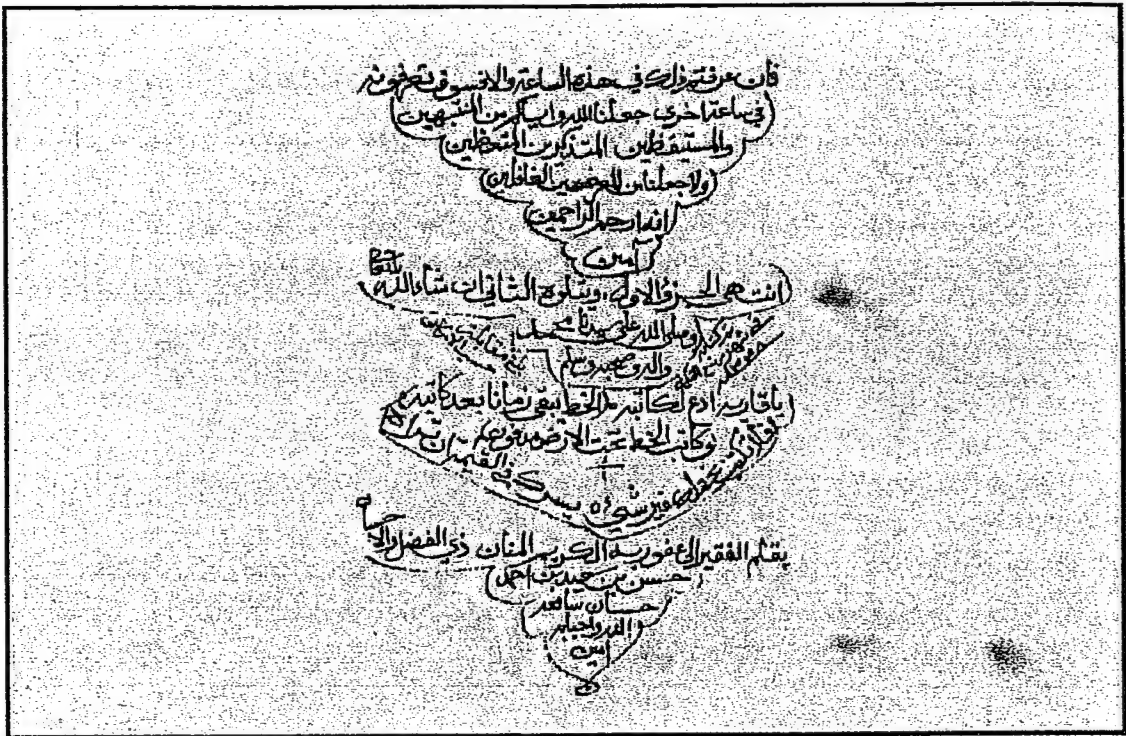 فان عرفتم ذلك في هذه الساعة والا فسوف تعرفونه
في ساعة اخرى جعلنا الله واياكم من المنتبهين
والمستيقظين المتذكرين المتعظين
ولا جعلنا من الغافلين
انه ارحم الراحمين
آمين
انتهى الجزؤ الاول ويتلوه الثاني ان شاء الله
وصلى الله على سيدنا محمد
واله وصحبه وسلم
يا قاريه ادع لكاتبه الخط يبقى زمانا بعد كاتبه
وكاتب الخط تحت الارض مدفون
فلا تكتب بخطك غير شيء يسرك في القيمة ان تراه
بقلم الفقير الى عفو ربه الكريم المنان ذي الفضل والاحسان
حسن بن عيد بن احمد
حسان سامحه
الله
آمين